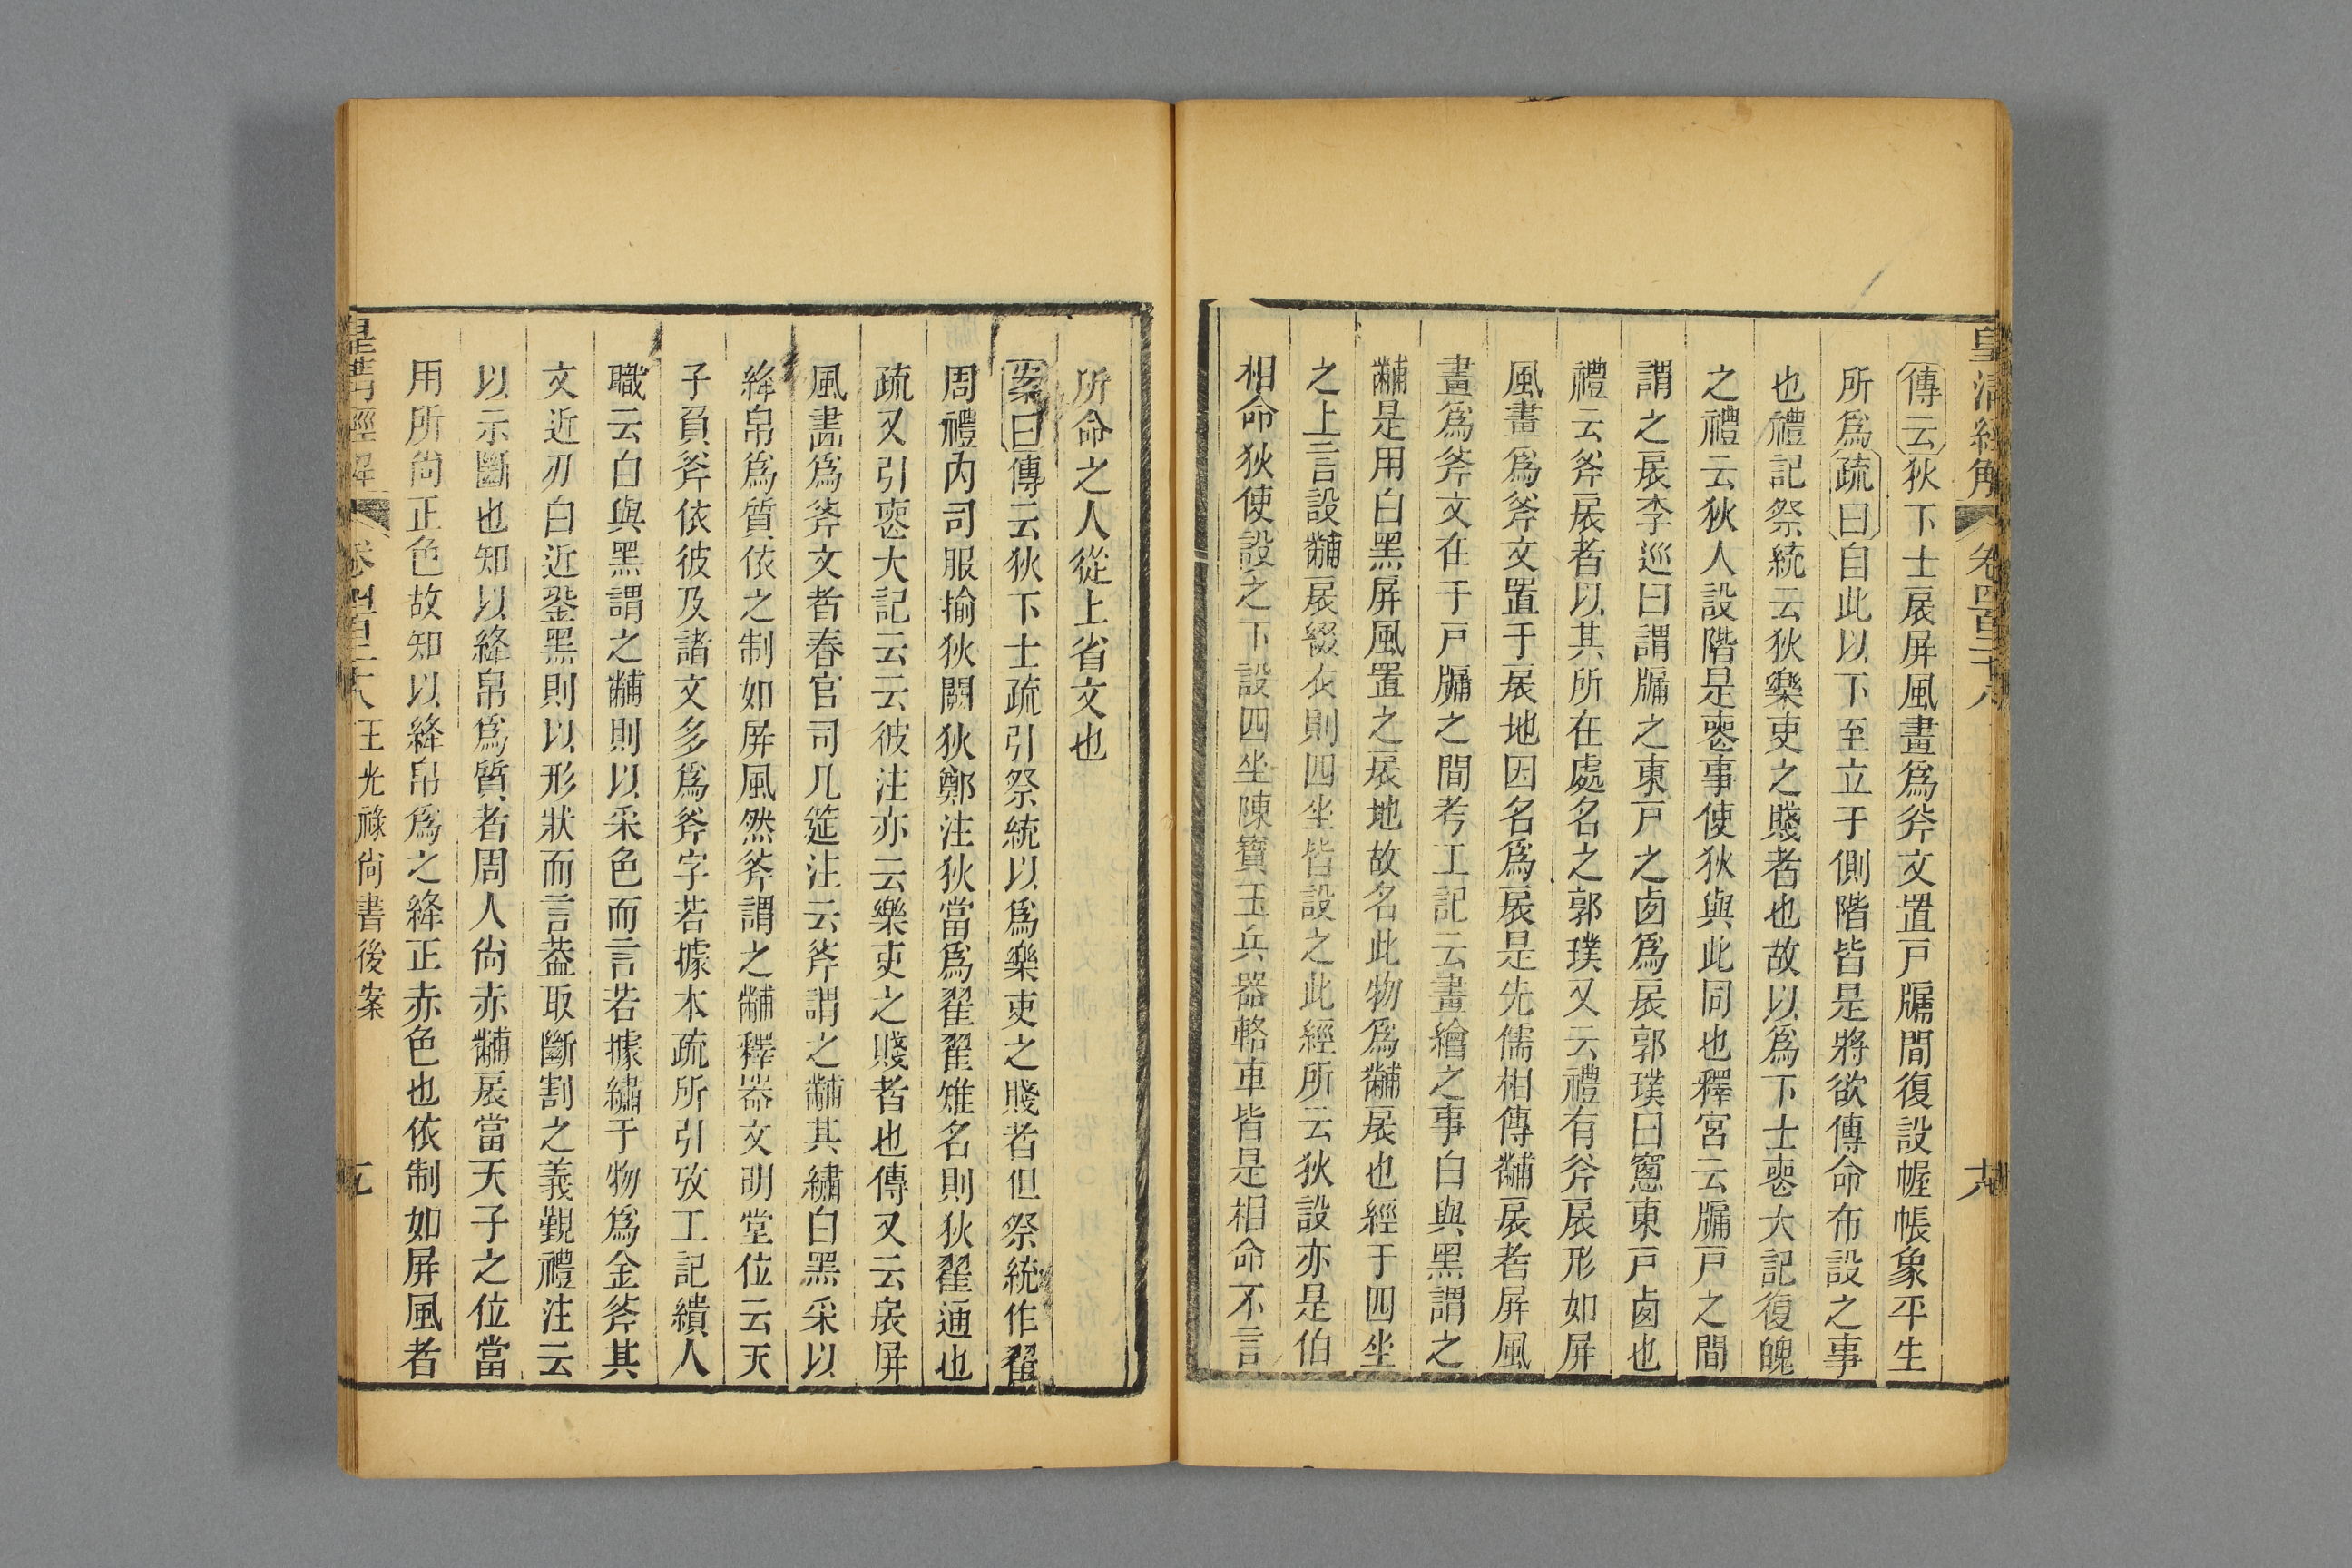 皇清經解 卷四百二十八 六
傳云狄下士扆屏風畫爲斧文置戸牖間復設幄帳象平生
所爲疏曰自此以下至立于側階皆是將欲傳命布設之事
也禮記祭統云狄樂吏之賤者也故以爲下士喪大記復魄
之禮云狄人設階是喪事使狄與此同也釋宮云牖戸之間
謂之扆李巡曰謂牖之東戸之西爲扆郭璞曰窻東戸西也
禮云斧扆者以其所在處名之郭璞又云禮有斧扆形如屏
風畫爲斧文置于扆地因名爲扆是先儒相傳黼扆者屏風
畫爲斧文在于戸牖之間考工記云畫繪之事白與黑謂之
黼是用白黑屏風置之扆地故名此物爲黼扆也經于四坐
之上言設黼扆綴衣則四坐皆設之此經所云狄設亦是伯
相命狄使設之下設四坐陳寶玉兵器輅車皆是相命不言
所命之人從上省文也
案曰傳云狄下士疏引祭統以爲樂吏之賤者但祭統作翟
周禮内司服揄狄闕狄鄭注狄當爲翟翟雉名則狄翟通也
疏又引喪大記云云彼注亦云樂吏之賤者也傳又云扆屏
風畫爲斧文者春官司几筵注云斧謂之黼其繡白黑采以
絳帛爲質依之制如屏風然斧謂之黼釋器文明堂位云天
子負斧依彼及諸文多爲斧字若據本疏所引攷工記繢人
職云白與黑謂之黼則以采色而言若據繡于物爲金斧其
文近刃白近銎黑則以形狀而言葢取斷割之義覲禮注云
以示斷也知以絳帛爲質者周人尙赤黼扆當天子之位當
用所尙正色故知以絳帛爲之絳正赤色也依制如屏風者
皇清經解 卷四百二十八 王光祿尙書後案